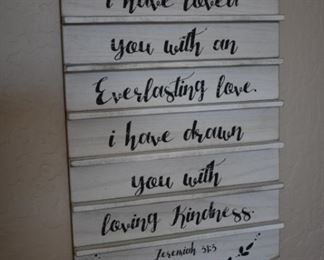 i have loved
you with an
Everlasting love.
i have drawn
you with
loving Kindness.
Jeremiah 31:3